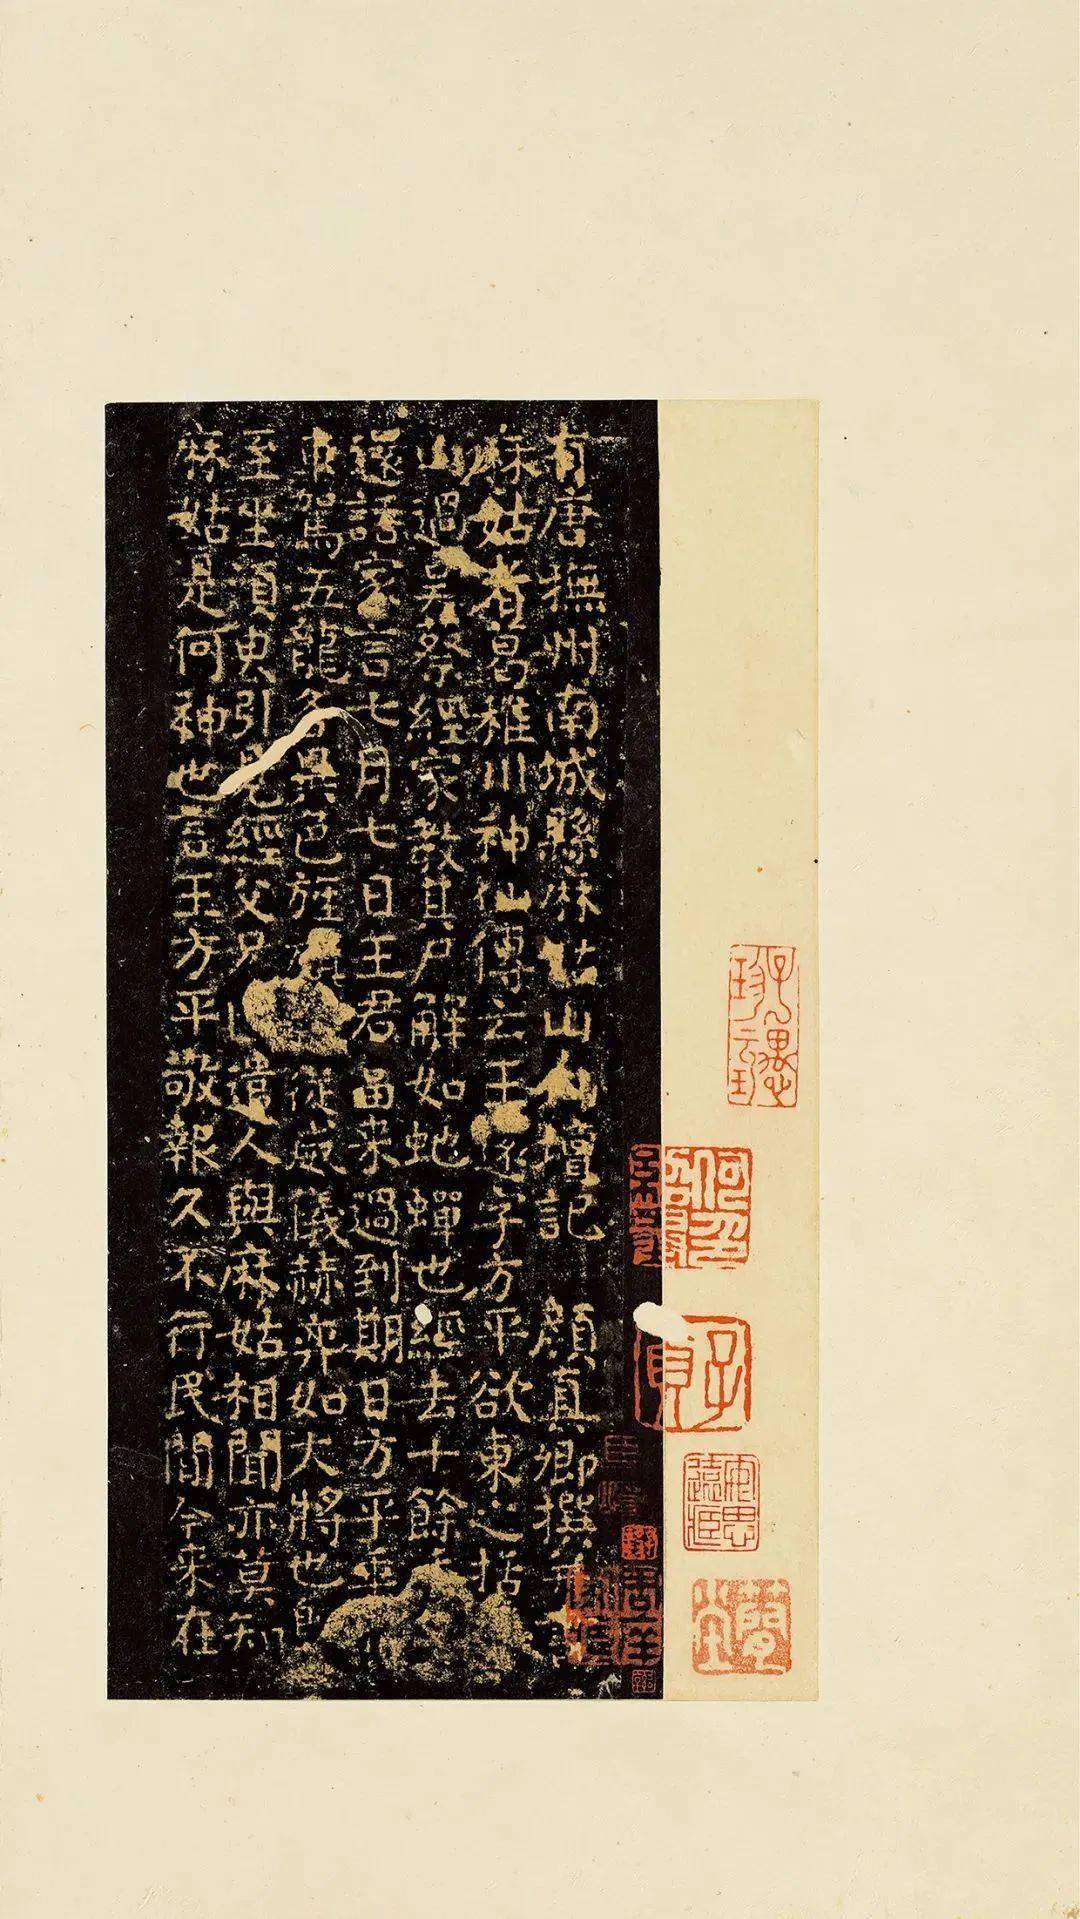 有唐撫州南城縣麻姑山仙壇記 顏真卿撰并書
麻姑者葛稚川神仙傳云王遠字方平欲東之括
山過吳蔡經家教其尸解如虵蟬也經去十餘年
還語家言七月七日王君當来過到期日方平乗
車駕五龍各異色旌從威儀赫弈如大將也
至坐須臾引見經父兄遣人與麻姑相聞亦莫知
麻姑是何神也言王方平敬報久不行民間今来在